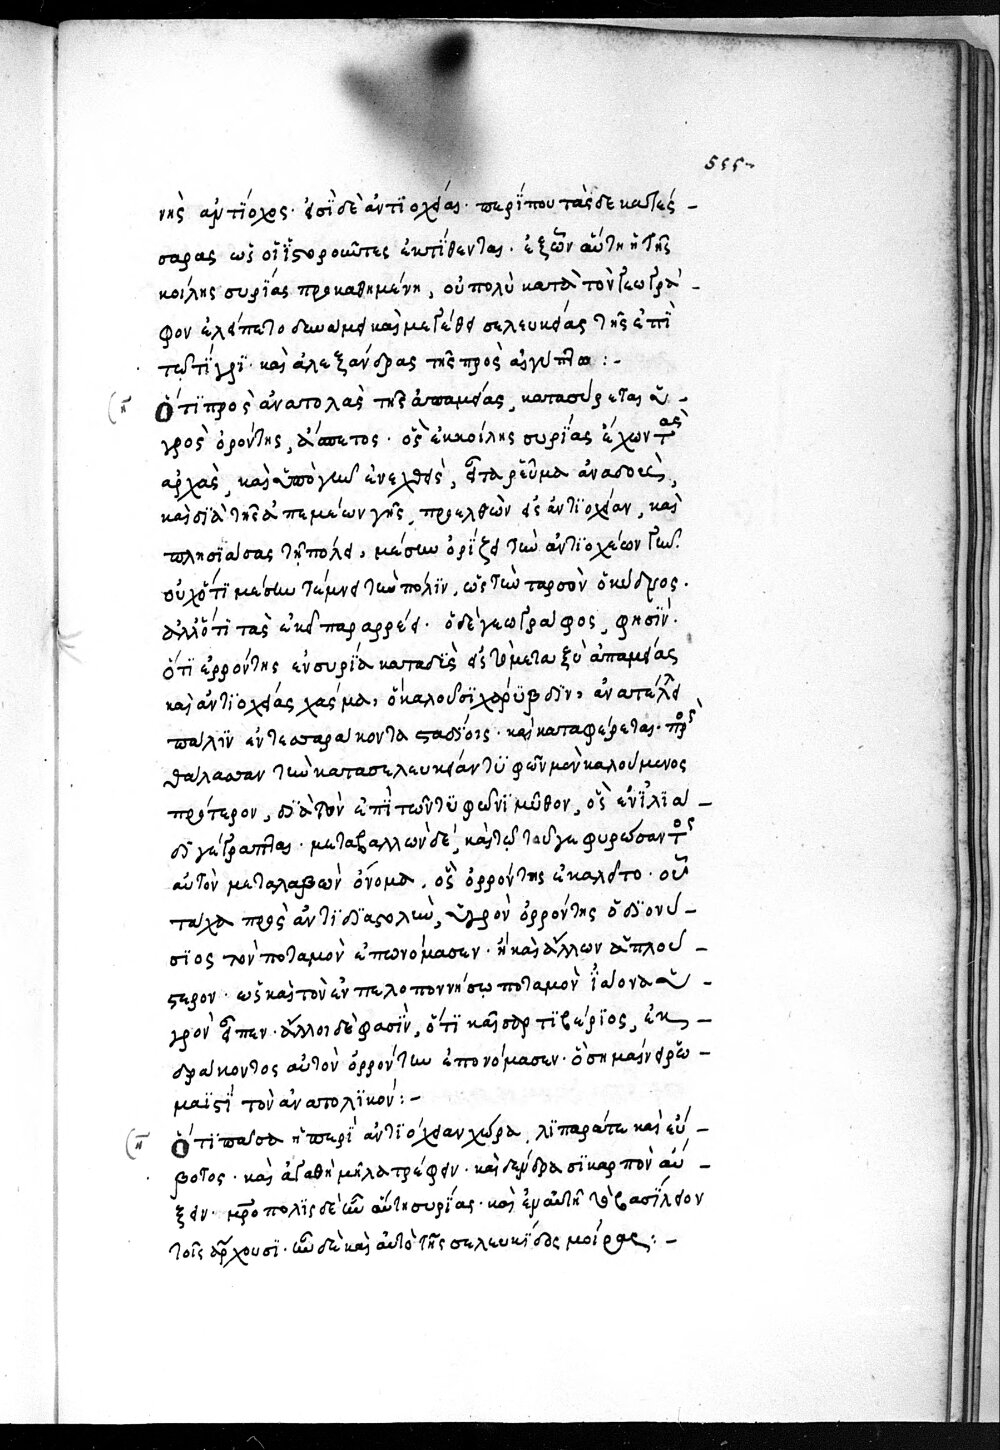 555-
νῆς ἀντίοχος· εἰσὶ δὲ ἀντιόχειαι περί που τὰς δεκατέσ-
σαρας ὡς οἱ ἱστοροῦντες ἐκτίθενται· ἐξ ὧν αὕτη ἡ τῆς
κοίλης συρίας προκαθημένη, οὐ πολὺ κατὰ τὸν γεωγρά-
φον ἐλείπετο δυνάμει καὶ μεγέθει σελευκείας τῆς ἐπὶ
τῷ τίγρι· καὶ ἀλεξανδρας τῆς πρὸς αἰγύπτω :-
ὅτι πρὸς ἀνατολὰς τῆς ἀπαμείας, κατασύρεται ὑ-
γρὸς ὀρόντης, ἀάπετος· ὃς ἐκ κοίλης συρίας ἔχων τὰς
ἀρχὰς, καὶ ὑπὸ γῆν ἐνεχθεὶς, εἶτα ῥεῦμα ἀναδοὺς,
καὶ διὰ τῆς ἀπαμέων γῆς, προελθὼν εἰς ἀντιόχειαν, καὶ
πλησιάσας τῇ πόλει, μέσην ὁρίζει τὴν ἀντιοχέων γῆν.
οὐχ ὅτι μέσην τέμνει τὴν πόλιν, ὡς τὴν ταρσὸν ὁ κύδνος.
ἀλλ' ὅτι τὰς ἐκεῖ παραρρέει· ὁ δὲ γεωγράφος, φησὶν.
ὅτι ὁ ρρόντης ἐν συρία καταδὺς εἰς τὸ μεταξὺ ἀπαμείας
καὶ ἀντιοχείας χάσμα, ὃ καλοῦσι χάρυβδιν, ἀνατέλλει
πάλιν ἐν τεσσαράκοντα σταδίοις· καὶ καταφέρεται πρὸς
θάλασσαν τὴν κατὰ σελευκείαν τυφῶν μὲν καλούμενος
πρότερον, διὰ τὸν ἐπὶ τῶ τυφῶνι μῦθον, ὃς ἐν ἰλιά-
δι γέγραπται· μεταβαλλὼν δέ, καὶ τῷ τοῦ γεφυρώσαντος
αὐτὸν μεταλαβὼν ὄνομα, ὃς ὀρρόντης ἐκαλεῖτο· οὗ
τάχα πρὸς ἀντιδιαστολὴν, ὑγρὸν ὀρρόντης ὁ διονύ-
σιος τὸν ποταμὸν ἐπωνόμασεν· ἢ καὶ ἄλλων ἁπλού-
στερον· ὡς καὶ τὸν ἐν πελοποννήσῳ ποταμὸν ἰάονα ὑ-
γρὸν εἶπεν· ἄλλοι δέ φασὶν, ὅτι καῖσαρ τιβέριος, ἐκ
δράκοντος αὐτὸν ὀρρόντην ἐπονόμασεν· ὃ σημαίνει ῥω-
μαϊστὶ τὸν ἀνατολικόν :-
ὅτι πᾶσα ἡ περὶ ἀντιόχειαν χώρα, λιπαρά τε καὶ εὔ-
βοτος· καὶ ἀγαθὴ μῆλα τρέφειν· καὶ δένδρεσι καρπὸν αὔ-
ξειν· μητρόπολις δὲ ἦν αὕτη συρίας· καὶ ἐν αὐτῇ τὸ βασίλειον
τοῖς ἄρχουσι· ἦν δὲ καὶ αὐτὸ τῆς σελευκίδος μοίρας :-